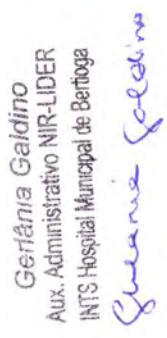 Gerlânia Galdino
Aux. Administrativo NIR-LIDER
INTS Hospital Municipal de Bertioga
Gerlania Galdino